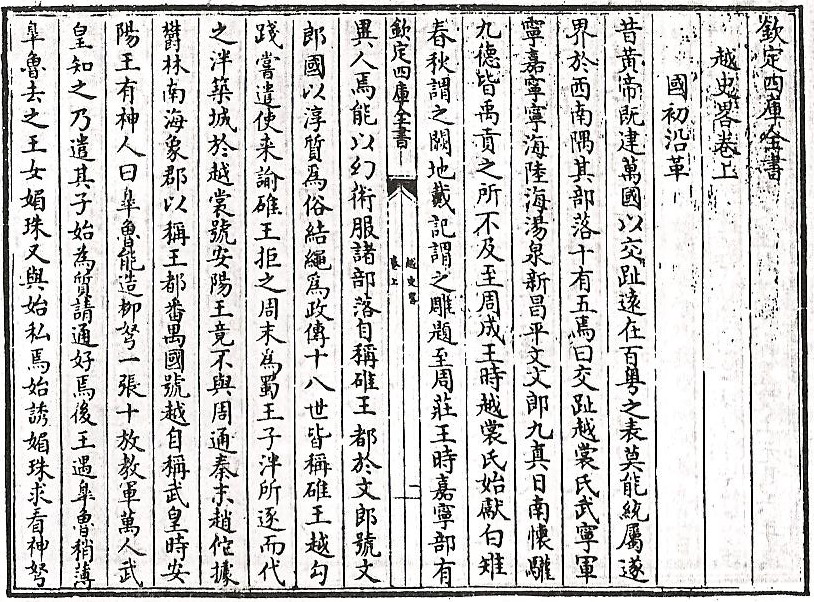 欽定四庫全書
越史畧卷上
國初沿革
昔黄帝既建萬國以交趾遠在百粤之表莫能統屬遂
界於西南隅其部落十有五焉曰交趾越裳氏武寧軍
寧嘉寧寧海陸海湯泉新昌平文文郎九真日南懷驩
九德皆禹貢之所不及至周成王時越裳氏始獻白雉
春秋謂之闕地戴記謂之雕題至周莊王時嘉寧部有
欽定四庫全書
越史畧
卷上
二
異人焉能以幻術服諸部落自稱碓王都於文郎號文
郎國以淳質為俗結繩為政傳十八世皆稱碓王越勾
踐嘗遣使来諭碓王拒之周末為蜀王子泮所逐而代
之泮築城於越裳號安陽王竟不與周通秦末趙佗據
欝林南海象郡以稱王都番禺國號越自稱武皇時安
陽王有神人曰皋魯能造柳弩一張十放教軍萬人武
皇知之乃遣其子始為質請通好焉後王遇皋魯稍薄
皋魯去之王女媚珠又與始私焉始誘媚珠求看神弩